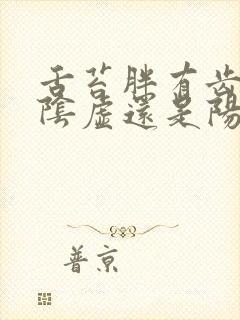 舌苔胖有齒
陰虛還是陽
普京